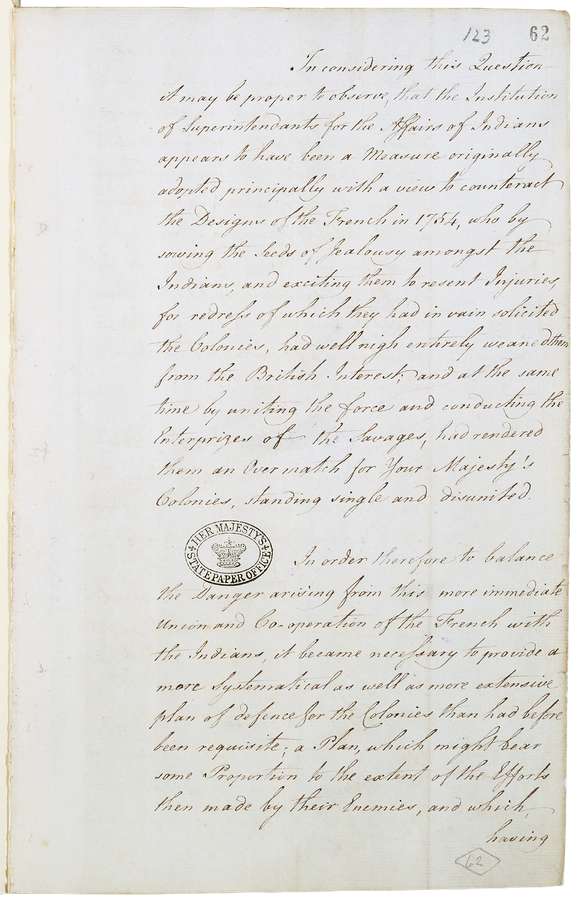 123 62
In considering this Question
it may be proper to observe, that the Institution
of Superintendants for the Affairs of Indians
appears to have been a Measure originally
adopted principally with a view to counteract
the Designs of the French in 1754, who by
sowing the Seeds of Jealousy amongst the
Indians, and exciting them to resent Injuries,
for redress of which they had in vain solicited
the Colonies, had well nigh entirely weaned them
from the British Interest; and at the same
time by uniting the force and conducting the
Enterprizes of the Savages, had rendered
them an Overmatch for Your Majesty's
Colonies, standing single and disunited.
HER MAJESTY'S
STATE PAPER OFFICE
In order therefore to balance
the Danger arising from this more immediate
Union and Co-operation of the French with
the Indians, it became necessary to provide a
more Systematical as well as more extensive
plan of defence for the Colonies than had before
been requisite; a Plan, which might bear
some Proportion to the extent of the Efforts
then made by their Enemies, and which,
having
62